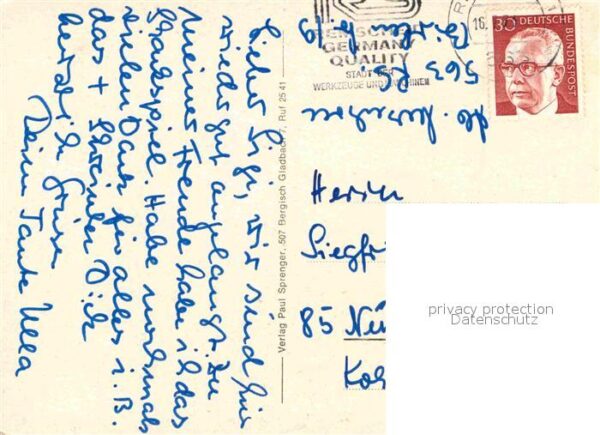 Lieber Sigi, wir sind hier
wieder gut angelangt. Zu
meiner Freude habe ich das
. Habe nochmals
vielen Dank für alles i. B.
das + Dich
herzliche Grüsse
Deine Tante Ulla
Verlag Paul Sprenger, 507 Bergisch Gladbach 7, Ruf 2541
REMSCHEID
GERMANY
QUALITY
STADT DER
WERKZEUGE UND MASCHINEN
16.
30
DEUTSCHE
BUNDESPOST
563 RS
Herrn
Siegfri
85 Nü
privacy protection
Datenschutz